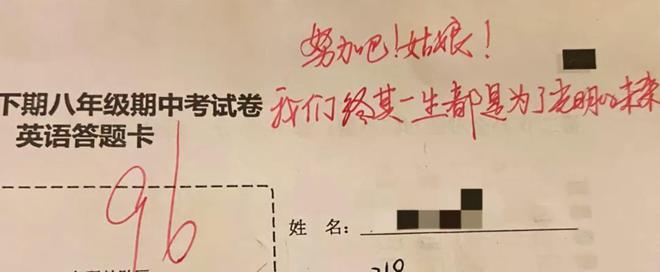 努力吧！姑娘！
我们终其一生都是为了光明的未来
下期八年级期中考试卷
英语答题卡
96
姓 名：